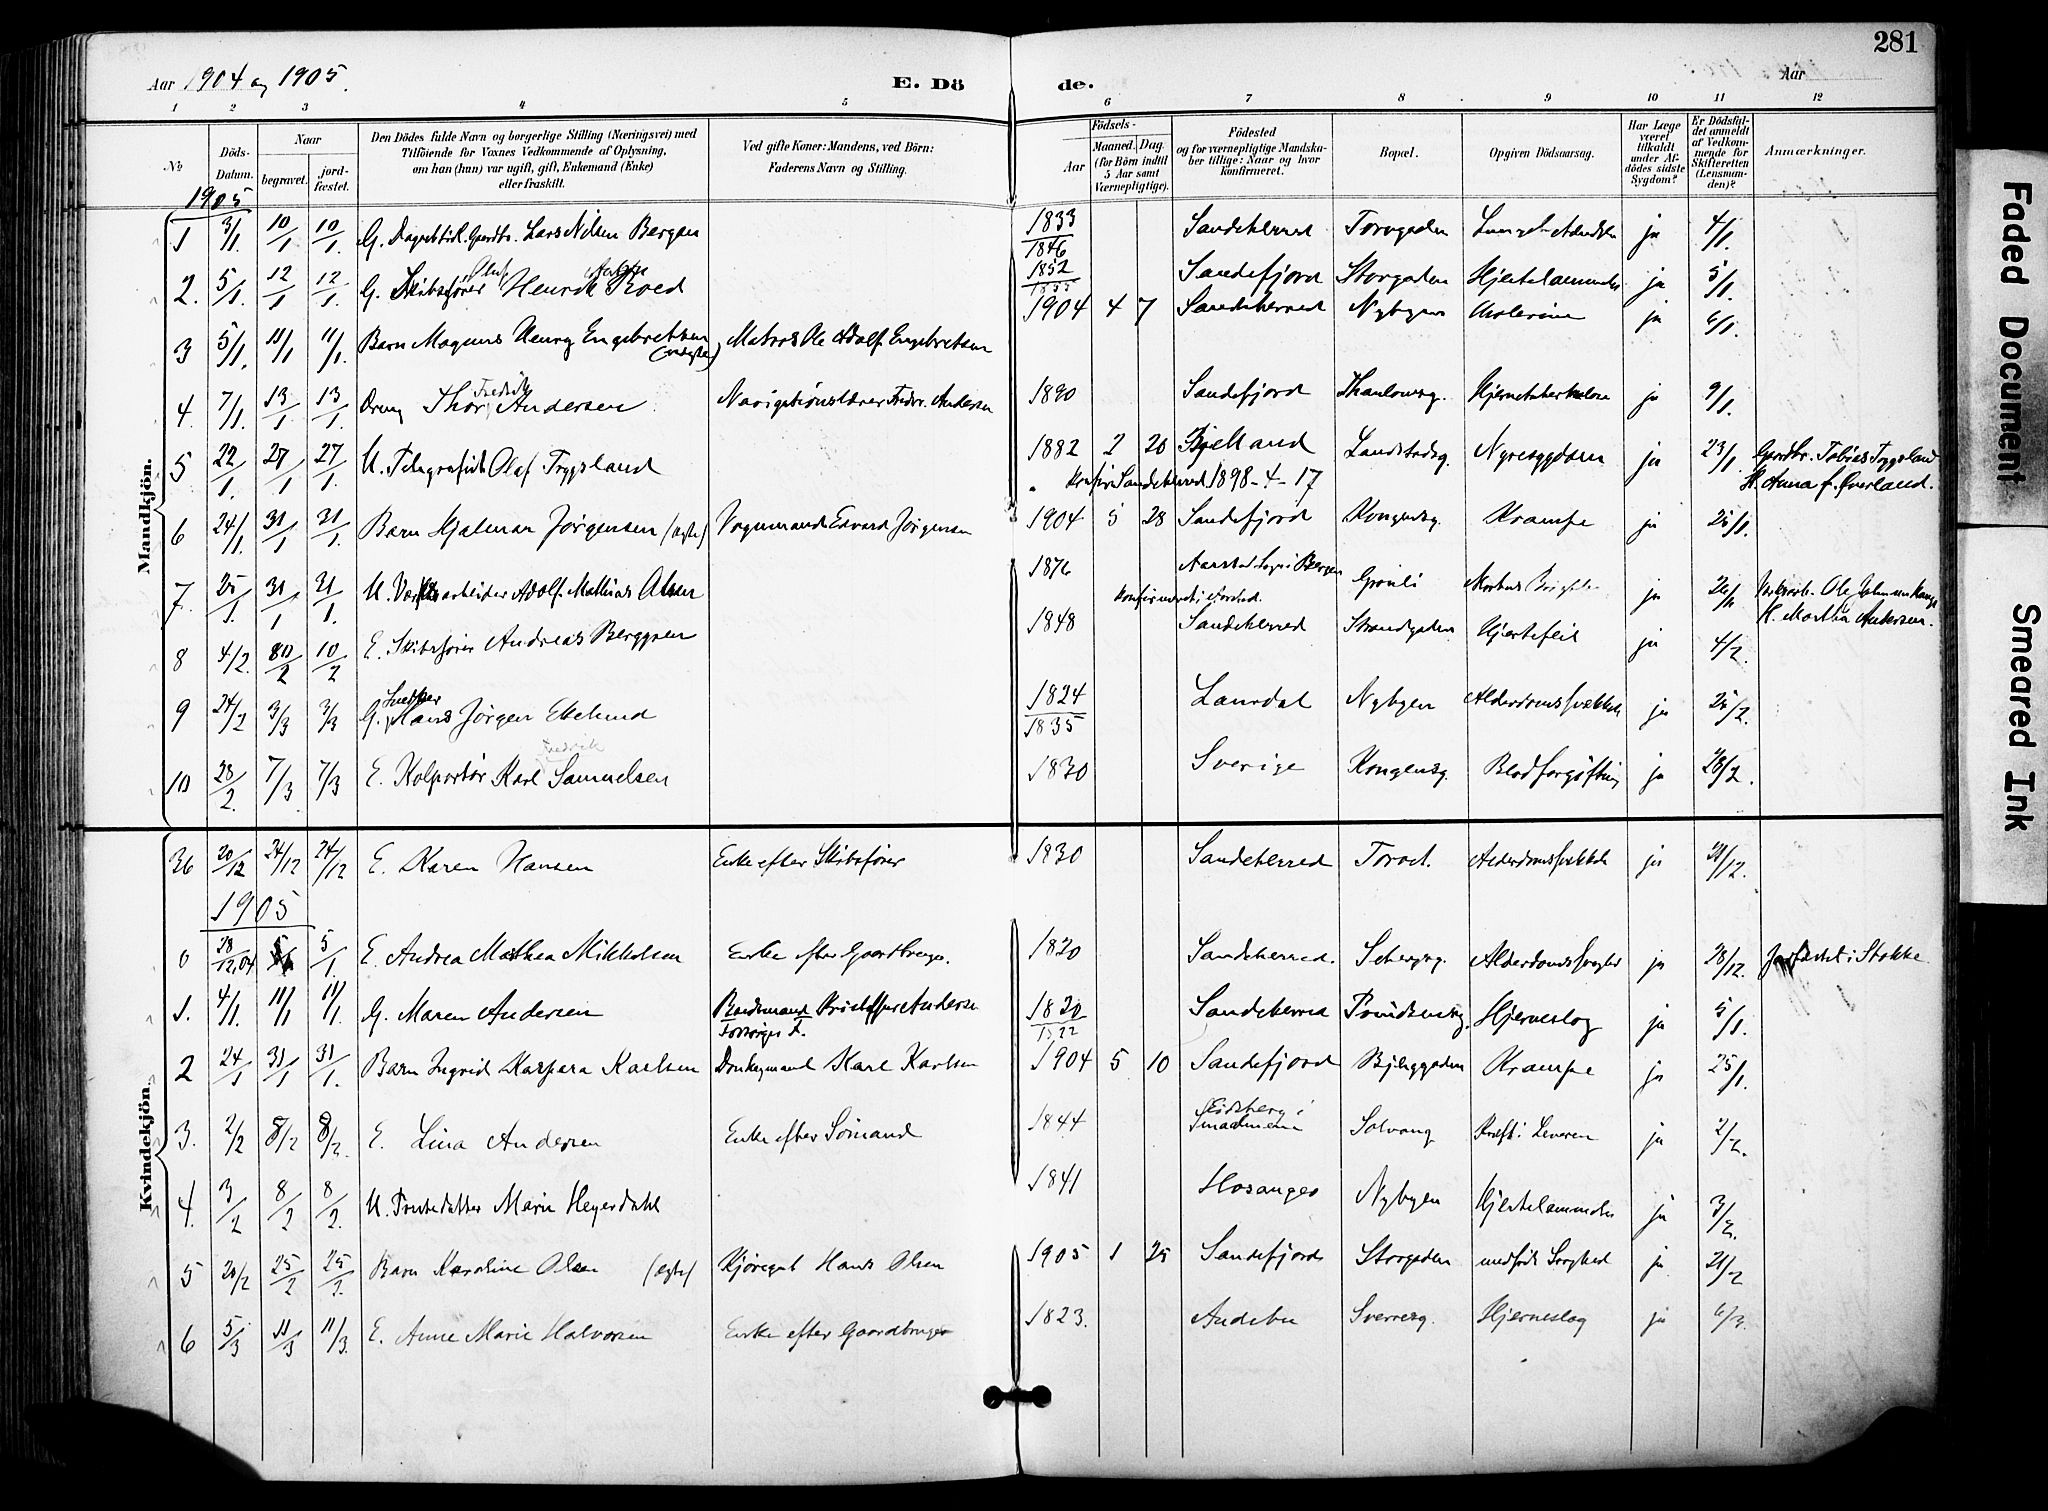 281
Aar 1904 og 1905.
E. Dö de.
Aar
1 2 3 4 5 6 7 8 9 10 11 12
No
Döds-Datum.
Naar
begravet.
jord-fæstet.
Den Dödes fulde Navn og borgerlige Stilling (Næringsvei) med
Tilföiende for Voxnes Vedkommende af Oplysning,
om han (hun) var ugift, gift, Enkemand (Enke)
eller fraskilt.
Ved gifte Koner: Mandens, ved Börn:
Faderens Navn og Stilling.
Födsels-
Aar
Maaned. Dag.
(for Börn indtil
5 Aar samt
Værnepligtige).
Födested
og for værnepligtige Mandska-
ber tillige: Naar og hvor
konfirmeret.
Bopæl.
Opgiven Dödsaarsag.
Har Læge
været
tilkaldt
under Af-
dödes sidste
Sygdom?
Er Dödsfal-
det anmeldt
af Vedkom-
mende for
Skifteretten
(Lensman-
den)?
Anmærkninger.
Mandkjön.
1905
1 3/1 10/1 10/1 G. Gaardbr. Lars Nilsen Bergan 1833 1846 Sandeherred Torvgaden ja 4/1.
2. 5/1. 12/1 12/1 G. Skibsfører Henrik Roed 1852 Sandefjord Storgaden Hjertelammelse ja 5/1.
3 5/1. 11/1 11/1. Barn Magnus Henry Engebretsen Matros Ole Adolf Engebretsen 1904 4 7 Sandeherred Nybyen Kolerine ja 6/1.
4. 7/1. 13/1 13/1. Dreng Thor Fredrik Andersen Navigationslærer Fredr. Andersen 1890 Sandefjord Thaulowsg. Hjernetuberkulose ja 9/1.
5 22/1. 27/1 27/1 U. Telegrafist Olaf Trygsland 1882 2 20 Bjelland Landstadsg. Nyresygdom ja 23/1. Gaardbr. Tobias Trygsland
Konfir. Sandeherred 1898-4-17 H. Anna f. Øverland.
6 24/1. 31/1 31/1. Barn Hjalmar Jørgensen (ægte) Vognmand Edvard Jørgensen 1904 5 28 Sandefjord Kongensg. Krampe ja 25/1.
7. 25/1. 31/1 31/1. U. Værksarbeider Adolf Mathias Olsen 1876 Aarstad Sogn i Bergen Grønli Morbus Brightii ja 26/1 Ole
konfirmeret i Aarstad. H. Martha Andersen.
8 4/2. 10/2 10/2 E. Skibsfører Andreas Berggren 1848 Sandeherred Strandgaden Hjertefeil ja 4/2.
9 24/2 3/3 3/3 G. Snedker Hans Jørgen Ekelund 1824 1835 Laurdal Nybyen Alderdomssvækkelse ja 25/2.
10 28/2. 7/3 7/3 E. Kolportør Karl Fredrik Samuelsen 1830 Sverige Kongensg. Blodforgiftning ja 28/2.
Kvindekjön.
36 20/12 24/12 24/12 E. Karen Hansen Enke efter Skibsfører 1830 Sandeherred Torvet. Alderdomssvækkelse ja 21/12.
1905
0 28/12.04 5/1 5/1. E. Andrea Mathea Mikkelsen Enke efter Gaardbruger. 1820 Sandeherred. Alderdomssvaghed ja 28/12. Jordfæstet i Stokke
1. 4/1. 11/1 11/1. G. Maren Andersen Baadsmand Kristoffer Andersen 1820 Sandeherred Hjerneslag ja 5/1.
2 24/1 31/1 31/1. Barn Ingrid Kaspara Karlsen Donkeymand Karl Karlsen 1904 5 10 Sandefjord Bjerggaden Krampe ja 25/1.
3. 2/2 8/2 8/2. E. Lina Andersen Enke efter Sömand 1844 Eidsberg i Smaalenene Solvang Kræft i Leveren ja 2/2.
4. 3/2 8/2 8/2. U. Marie Heyerdahl 1841 Hosanger Nybyen Hjertelammelse ja 3/2.
5 20/2 25/2 25/2. Barn Karoline Olsen (ægte) Hans Olsen 1905 1 25 Sandefjord Storgaden medfödt Svaghed ja 21/2
6 5/3 11/3 11/3. E. Anne Marie Halvorsen Enke efter Gaardbruger 1823. Andebu Sverresg. Hjerneslag ja 6/3.
Faded Document
Smeared Ink